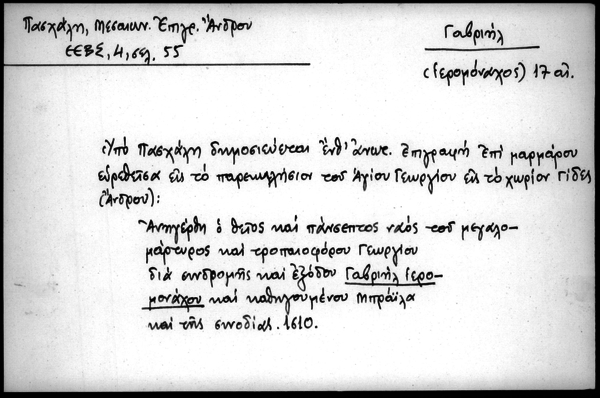 Πασχάλη, Μεσαιων. Ἐπιγρ. Ἄνδρου
ΕΕΒΣ, 4, σελ. 55
Γαβριήλ
(ἱερομόναχος) 17 αἰ.
Ὑπὸ Πασχάλη δημοσιεύεται ἔνθ' ἄνωτ. Ἐπιγραφὴ ἐπὶ μαρμάρου
εὑρεθεῖσα εἰς τὸ παρεκκλήσιον τοῦ Ἁγίου Γεωργίου εἰς τὸ χωρίον Γίδες
(Ἄνδρου):
Ἀνηγέρθη ὁ θεῖος καὶ πάνσεπτος ναὸς τοῦ μεγαλο-
μάρτυρος καὶ τροπαιοφόρου Γεωργίου
διὰ συνδρομῆς καὶ ἐξόδου Γαβριὴλ ἱερο-
μονάχου καὶ καθηγουμένου Μπραΐλα
καὶ τῆς συνοδίας. 1610.